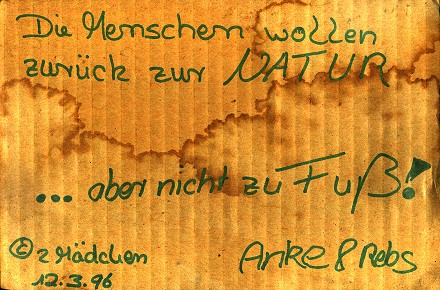 Die Menschen wollen
zurück zur NATUR
... aber nicht zu Fuß!
© 2 Mädchen Anke & Rebs
12.3.96